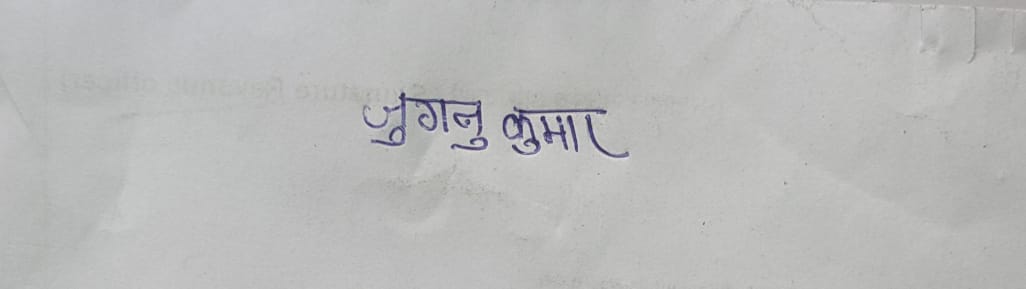 जुगनु कुमार